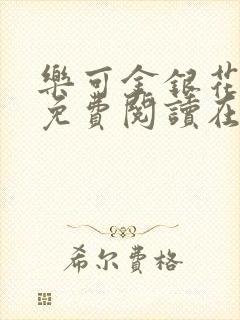 樂可金銀花
免費閱讀在
希尔费格